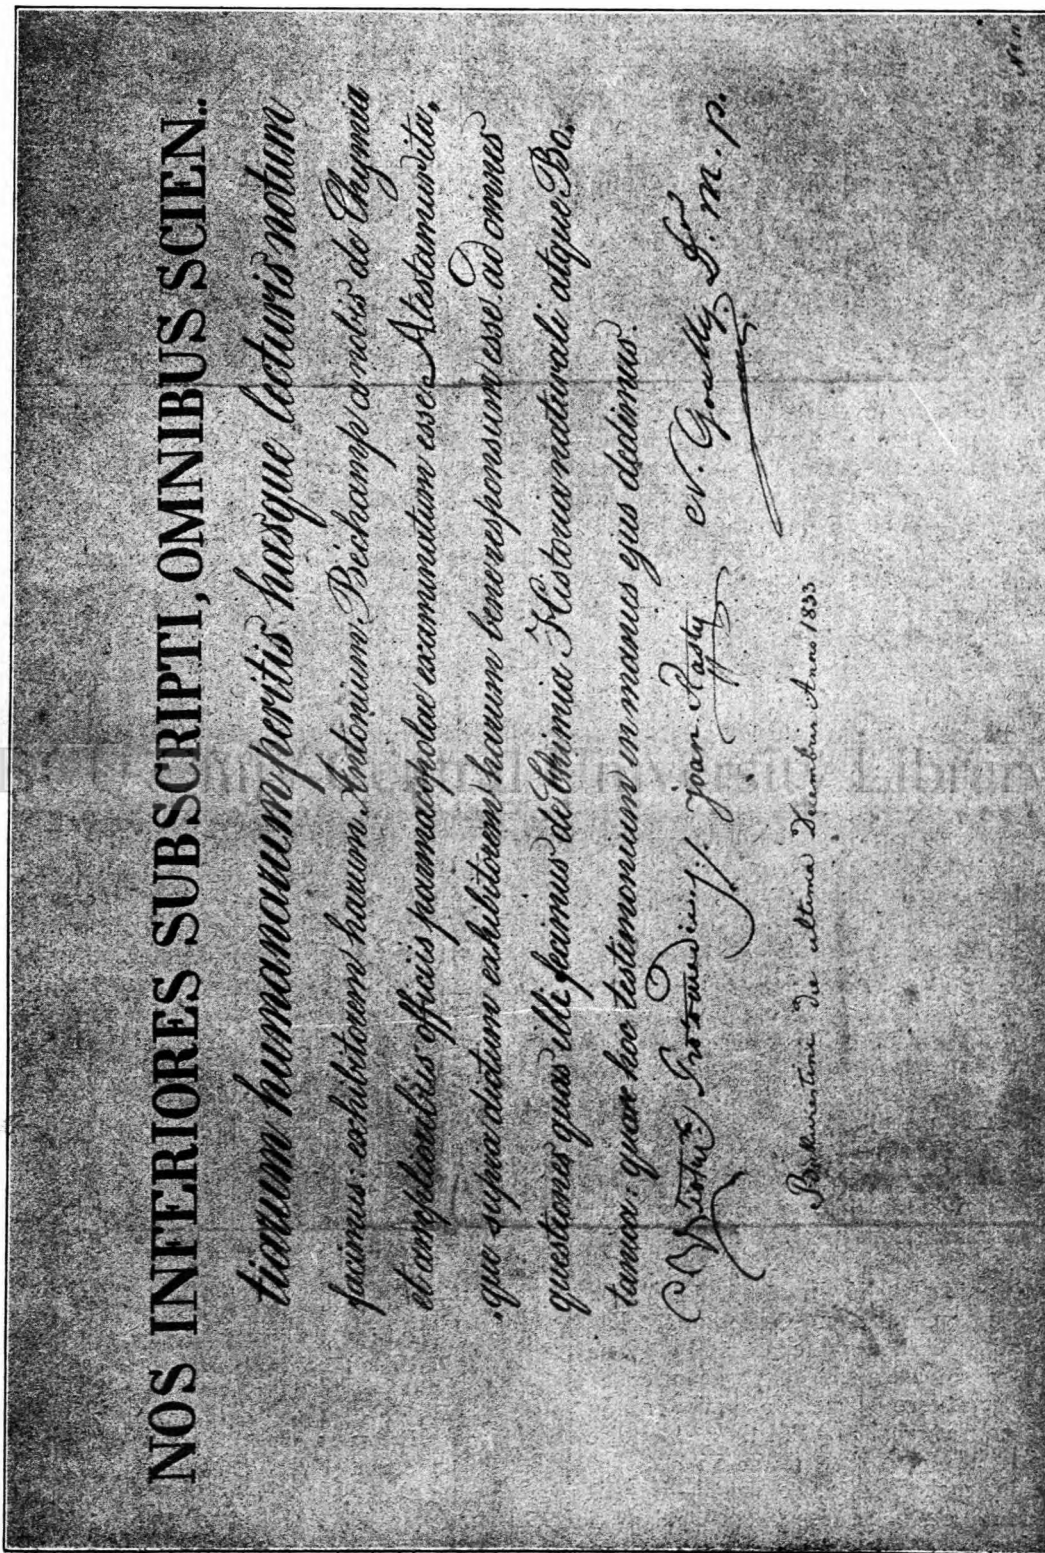 NOS INFERIORES SUBSCRIPTI, OMNIBUS SCIEN..
tiarum humanarum peritis hasque lecturis notum
facimus: exhibitorem harum Antonium Béchamp a nobis de Chymia
et amplicatibilis officiis parmacopolae examinatum esse Atestamur ita,
que supra dictum exhibitorem harum bene responsum esse ad omnes
questiones quas illi fecimus de thimia Historia naturali atque Bo,
tanica: quar hoc testimonium in manus ejus dedimus.
Joan
Dr. m. p.
die ultima Decembrie Anno 1833